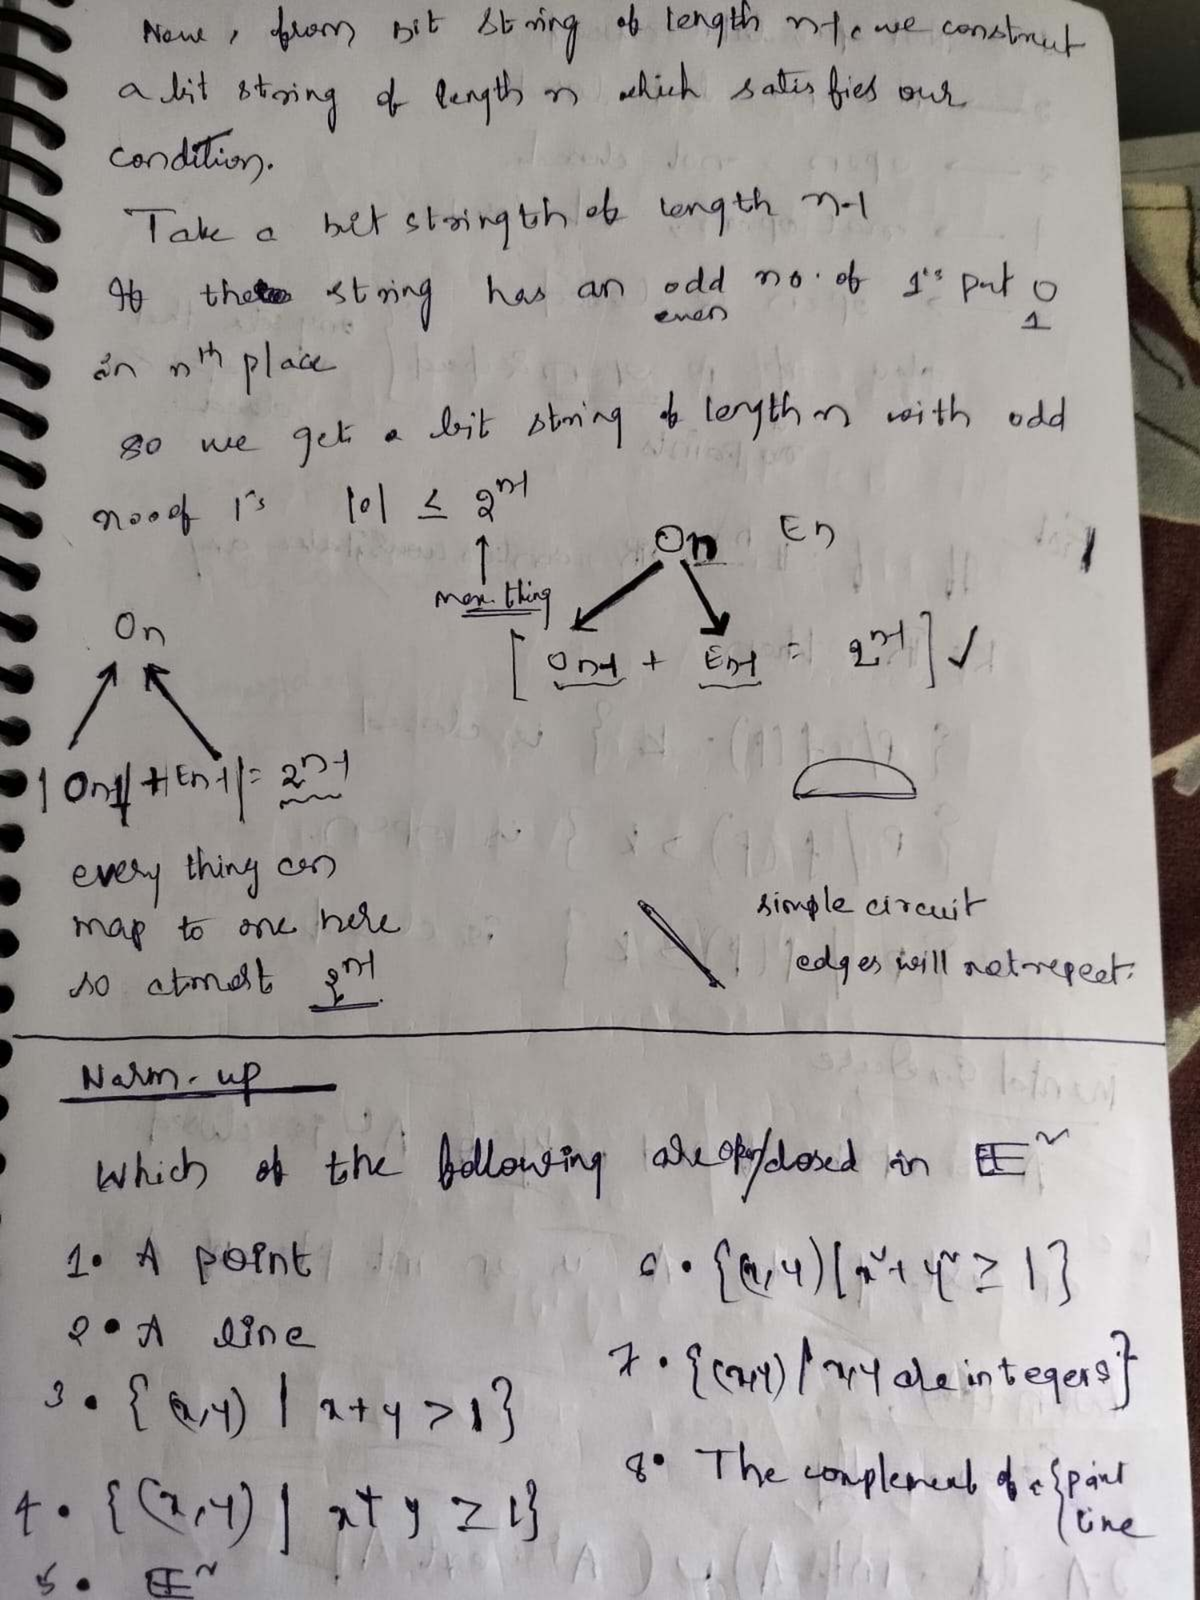 Now, from bit string of length n-1, we construct
a bit string of length n which satisfies our
condition.
Take a bit stringth of length n-1
If the string has an odd no. of 1's put 0
even 1
in nth place
so we get a bit string of length n with odd
no of 1's |O| ≤ 2^n-1
↑
max. thing
On En
[On-1 + En-1 = 2^n-1] ✓
On
|On-1| + |En-1| = 2^n-1
every thing can
map to one here
so atmost 2^n-1
simple circuit
edges will not repeat.
Warm-up
Which of the following are open/closed in E²
1. A point
2. A line
3. {(x,y) | x+y > 1}
4. {(x,y) | x+y ≥ 1}
5. E²
6. {(x,y) | x²+y² ≥ 1}
7. {(x,y) | x,y are integers}
8. The complement of a {point
line